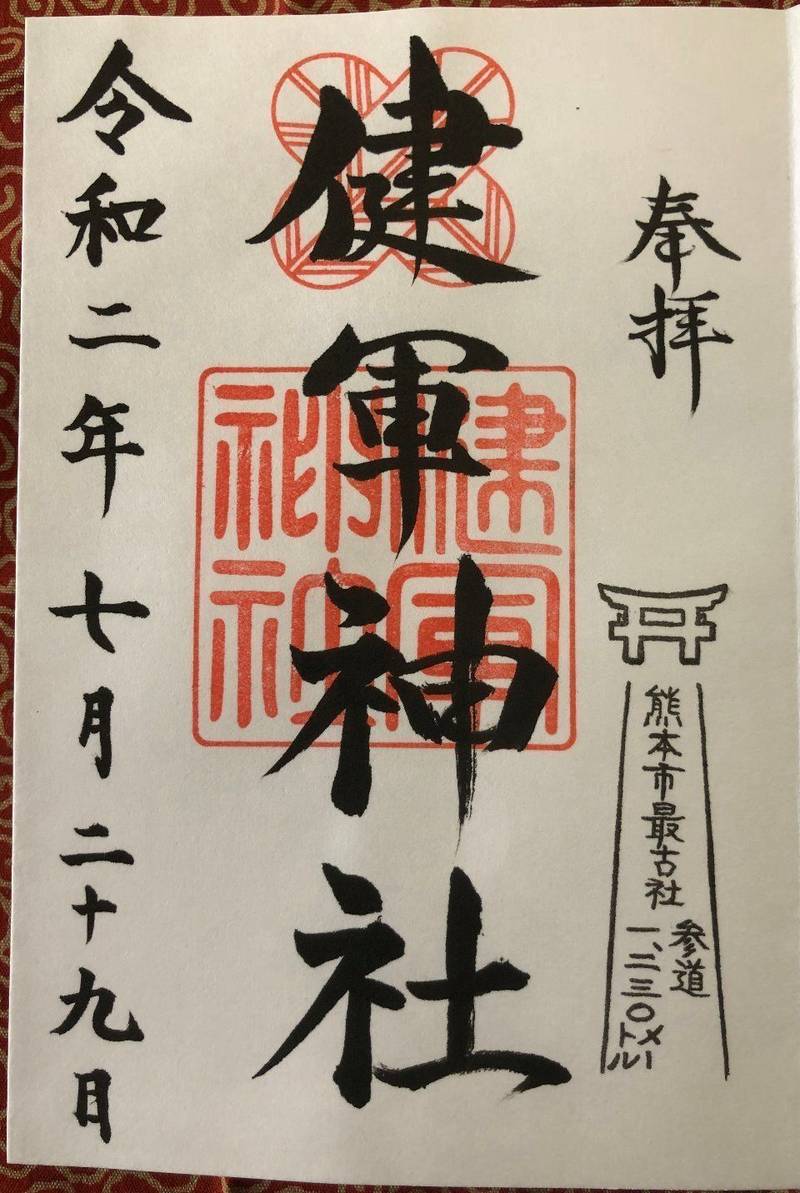 奉拝
熊本市最古社
参道
一、二三〇メートル
健軍神社
健軍
神社
令和二年七月二十九日